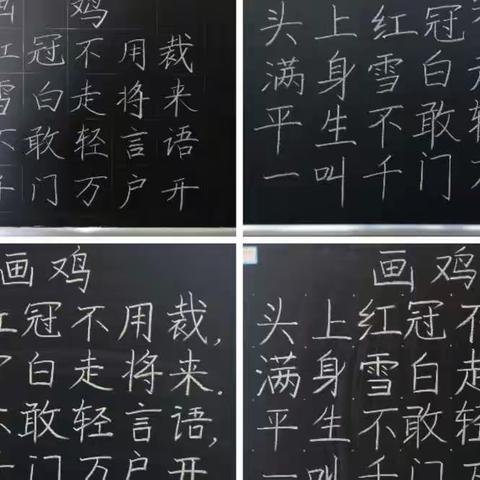 画 鸡
红冠不用裁
雪白走将来
不敢轻言语
千门万户开
头上红冠
满身雪白
平生不敢轻
一叫千门
画鸡
红冠不用裁,
白走将来.
不敢轻言语,
门万户开
画鸡
头上红冠不
满身雪白走
平生不敢轻
一叫千门万